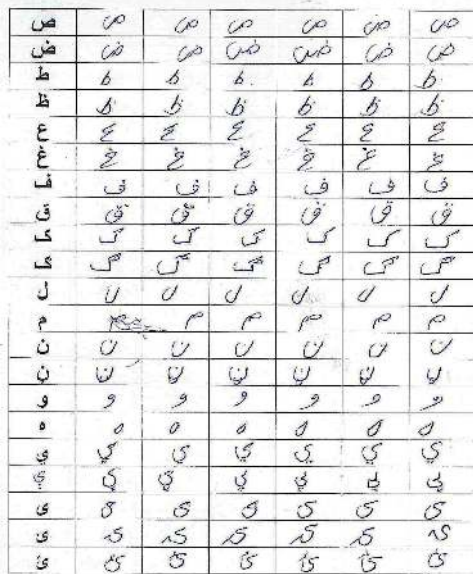 ص ص ص ص ص ص ص
ض ض ض ض ض ض ض
ط ط ط ط ط ط ط
ظ ظ ظ ظ ظ ظ ظ
ع ع ع ع ع ع ع
غ غ غ غ غ غ غ
ف ف ف ف ف ف ف
ق ق ق ق ق ق ق
ک ک ک ک ک ک ک
گ گ گ گ گ گ گ
ل ل ل ل ل ل ل
م م م م م م
ن ن ن ن ن ن ن
ڼ ڼ ڼ ڼ ڼ ڼ ڼ
و و و و و و و
ه ه ه ه ه ه ه
ي ي ي ي ي ي ي
ې ې ې ې ې ې ې
ی ی ی ی ی ی ی
ۍ ۍ ۍ ۍ ۍ ۍ ۍ
ئ ئ ئ ئ ئ ئ ئ